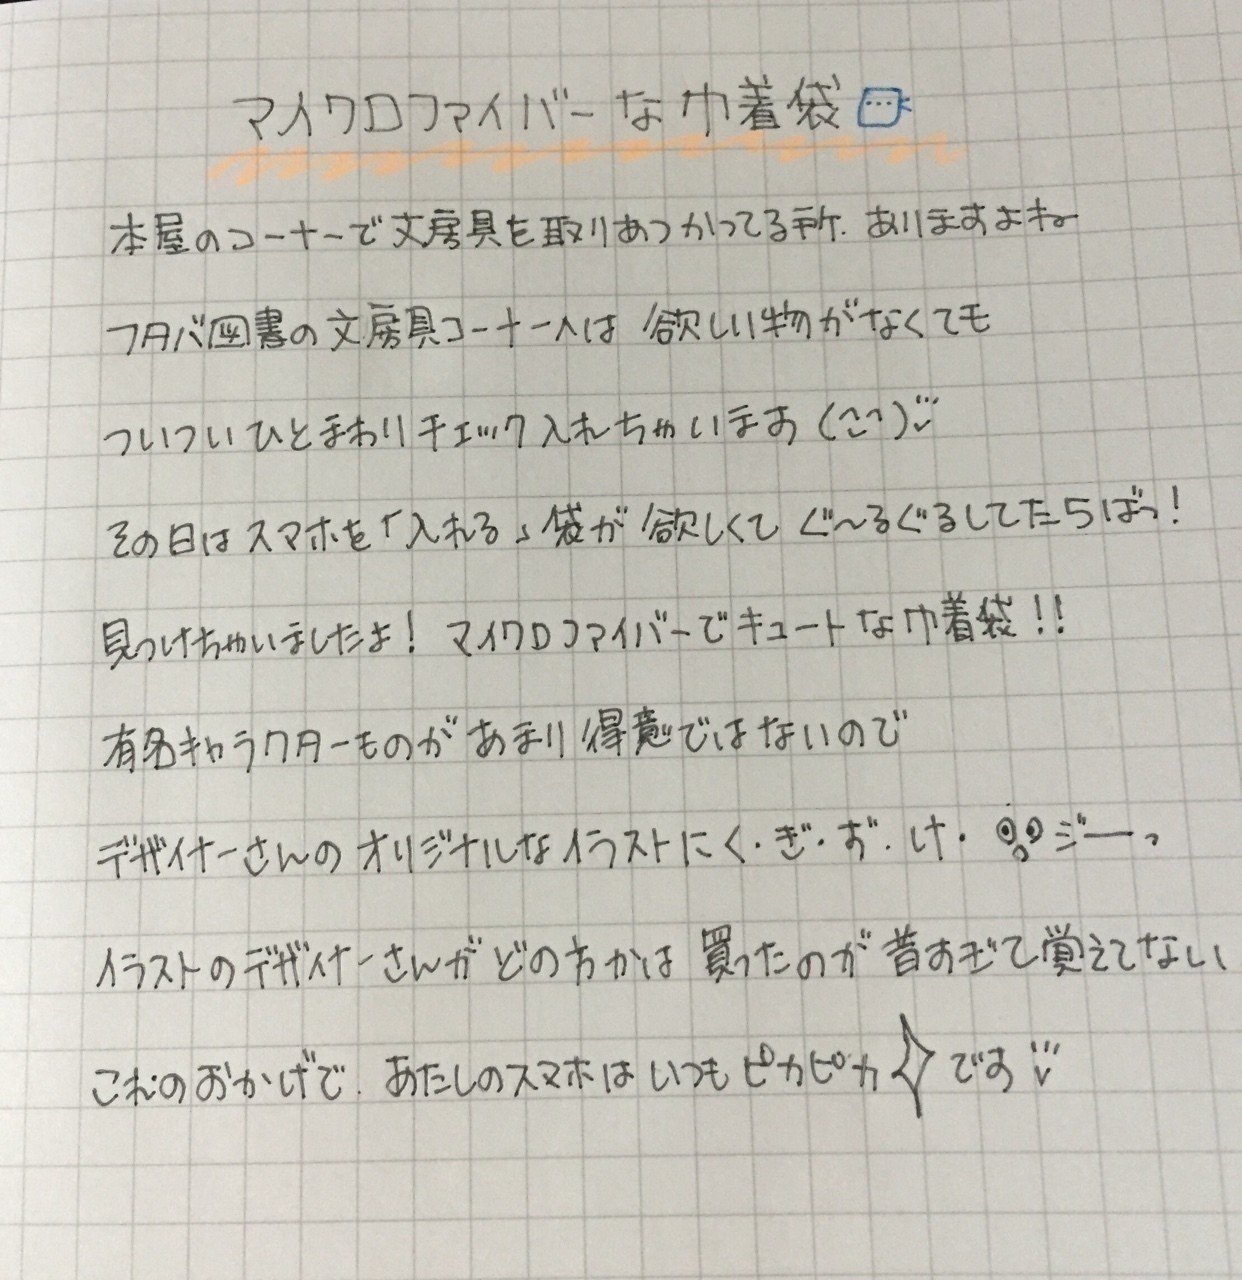 マイクロファイバーな巾着袋
本屋のコーナーで文房具を取りあつかってる所、ありますよね
フタバ図書の文房具コーナーへは欲しい物がなくても
ついついひとまわりチェック入れちゃいます(^^)
その日はスマホを「入れる」袋が欲しくて ぐ〜るぐるしてたらばっ!
見つけちゃいましたよ! マイクロファイバーでキュートな巾着袋!!
有名キャラクターものがあまり得意ではないので
デザイナーさんのオリジナルなイラストにく・ぎ・づ・け・ ジーっ
イラストのデザイナーさんがどの方かは買ったのが昔すぎて覚えてない
これのおかげで、あたしのスマホはいつもピカピカです